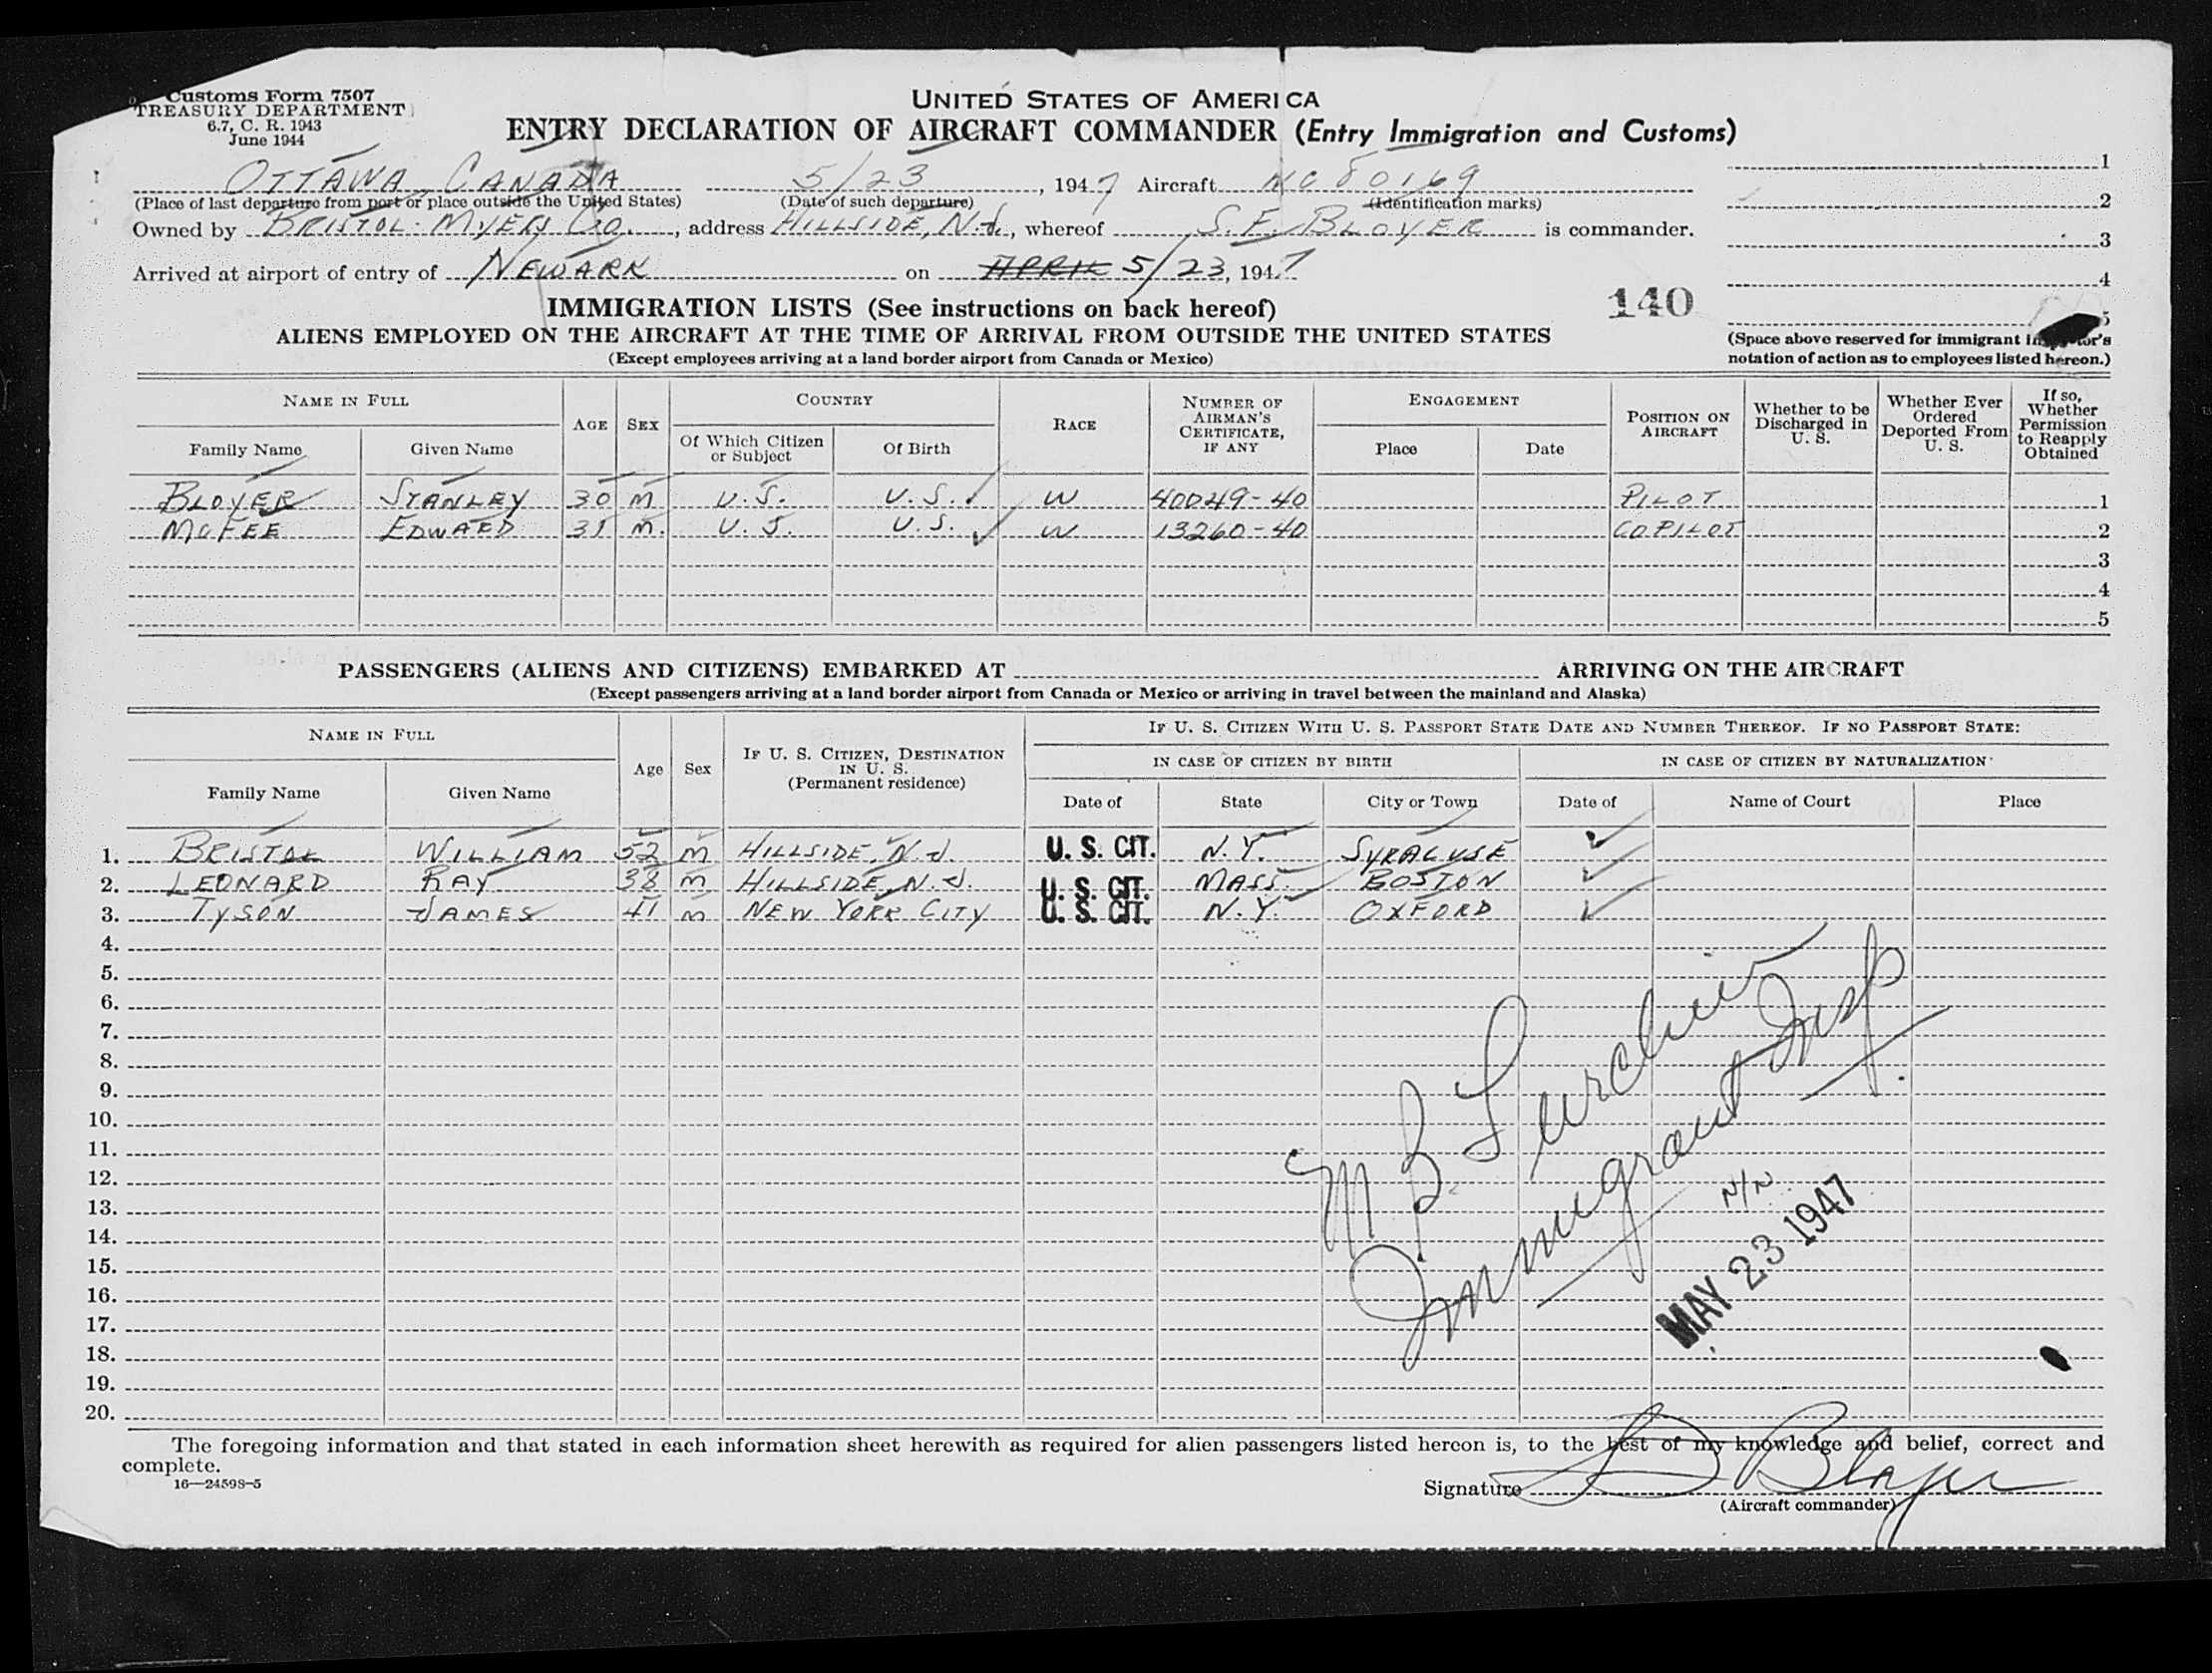 Customs Form 7507
TREASURY DEPARTMENT
6.7, C. R. 1943
June 1944
UNITED STATES OF AMERICA
ENTRY DECLARATION OF AIRCRAFT COMMANDER (Entry Immigration and Customs)
OTTAWA, CANADA 5/23, 1947 Aircraft NC 80169
(Place of last departure from port or place outside the United States) (Date of such departure) (Identification marks)
Owned by BRISTOL-MYERS CO., address HILLSIDE, N.J., whereof S.F. BLOYER is commander.
Arrived at airport of entry of NEWARK on APRIL 5/23, 1947
1
2
3
4
5
(Space above reserved for immigrant inspector's
notation of action as to employees listed hereon.)
IMMIGRATION LISTS (See instructions on back hereof) 140
ALIENS EMPLOYED ON THE AIRCRAFT AT THE TIME OF ARRIVAL FROM OUTSIDE THE UNITED STATES
(Except employees arriving at a land border airport from Canada or Mexico)
NAME IN FULL AGE SEX COUNTRY RACE NUMBER OF AIRMAN'S CERTIFICATE, IF ANY ENGAGEMENT POSITION ON AIRCRAFT Whether to be Discharged in U. S. Whether Ever Ordered Deported From U. S. If so, Whether Permission to Reapply Obtained
Family Name Given Name Of Which Citizen or Subject Of Birth Place Date
BLOYER STANLEY 30 M U.S. U.S. W 40049-40 PILOT 1
MCFEE EDWARD 31 M. U.S. U.S. W 13260-40 COPILOT 2
3
4
5
PASSENGERS (ALIENS AND CITIZENS) EMBARKED AT ARRIVING ON THE AIRCRAFT
(Except passengers arriving at a land border airport from Canada or Mexico or arriving in travel between the mainland and Alaska)
NAME IN FULL Age Sex IF U. S. CITIZEN, DESTINATION IN U. S. (Permanent residence) IF U. S. CITIZEN WITH U. S. PASSPORT STATE DATE AND NUMBER THEREOF. IF NO PASSPORT STATE:
IN CASE OF CITIZEN BY BIRTH IN CASE OF CITIZEN BY NATURALIZATION
Family Name Given Name Date of State City or Town Date of Name of Court Place
1. BRISTOL WILLIAM 52 M HILLSIDE, N.J. U. S. CIT. N.Y. SYRACUSE
2. LEONARD RAY 38 M HILLSIDE, N.J. U. S. CIT. MASS. BOSTON
3. TYSON JAMES 41 M NEW YORK CITY U. S. CIT. N.Y. OXFORD
4.
5.
6.
7.
8.
9.
10.
11.
12.
13.
14.
15.
16.
17.
18.
19.
20.
M B
Immigrant Insp.
N/N
MAY 23 1947
The foregoing information and that stated in each information sheet herewith as required for alien passengers listed hereon is, to the best of my knowledge and belief, correct and
complete.
16—24598-5
Signature S Bloyer
(Aircraft commander)